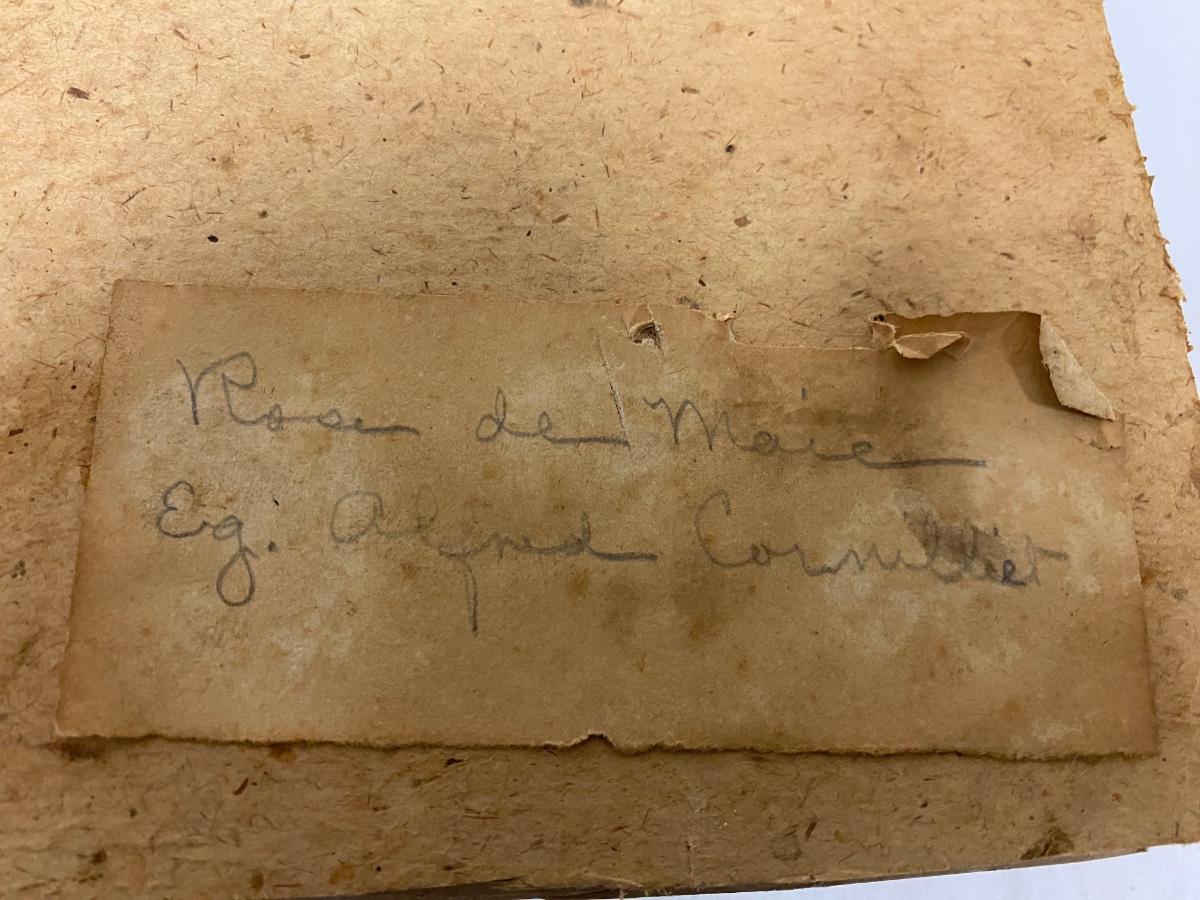 Rose de Maie
Eg. Alfred Cornilliet